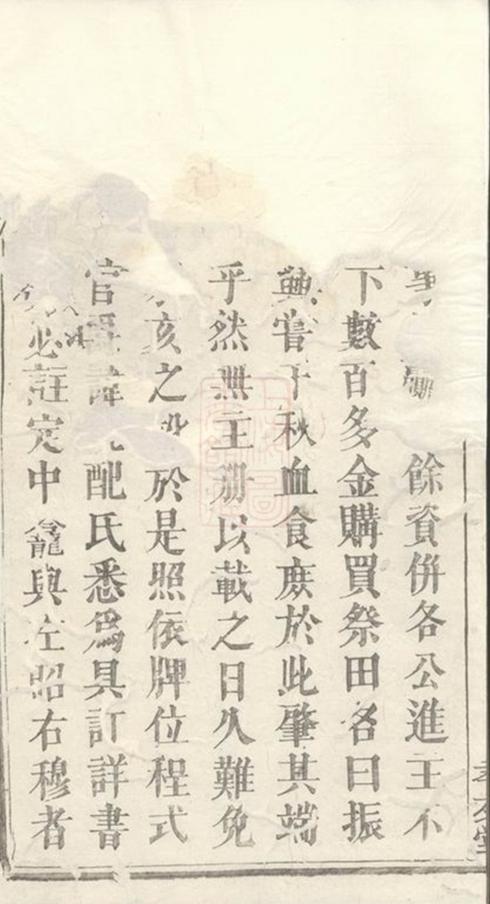 餘資併各公進主不
下數百多金購買祭田名曰振
興嘗千秋血食庶於此肇其端
乎然無主冊以載之日久難免
亥之於是照依牌位程式
官爵諱配氏悉為具訂詳書
必註定中龕與左昭右穆者